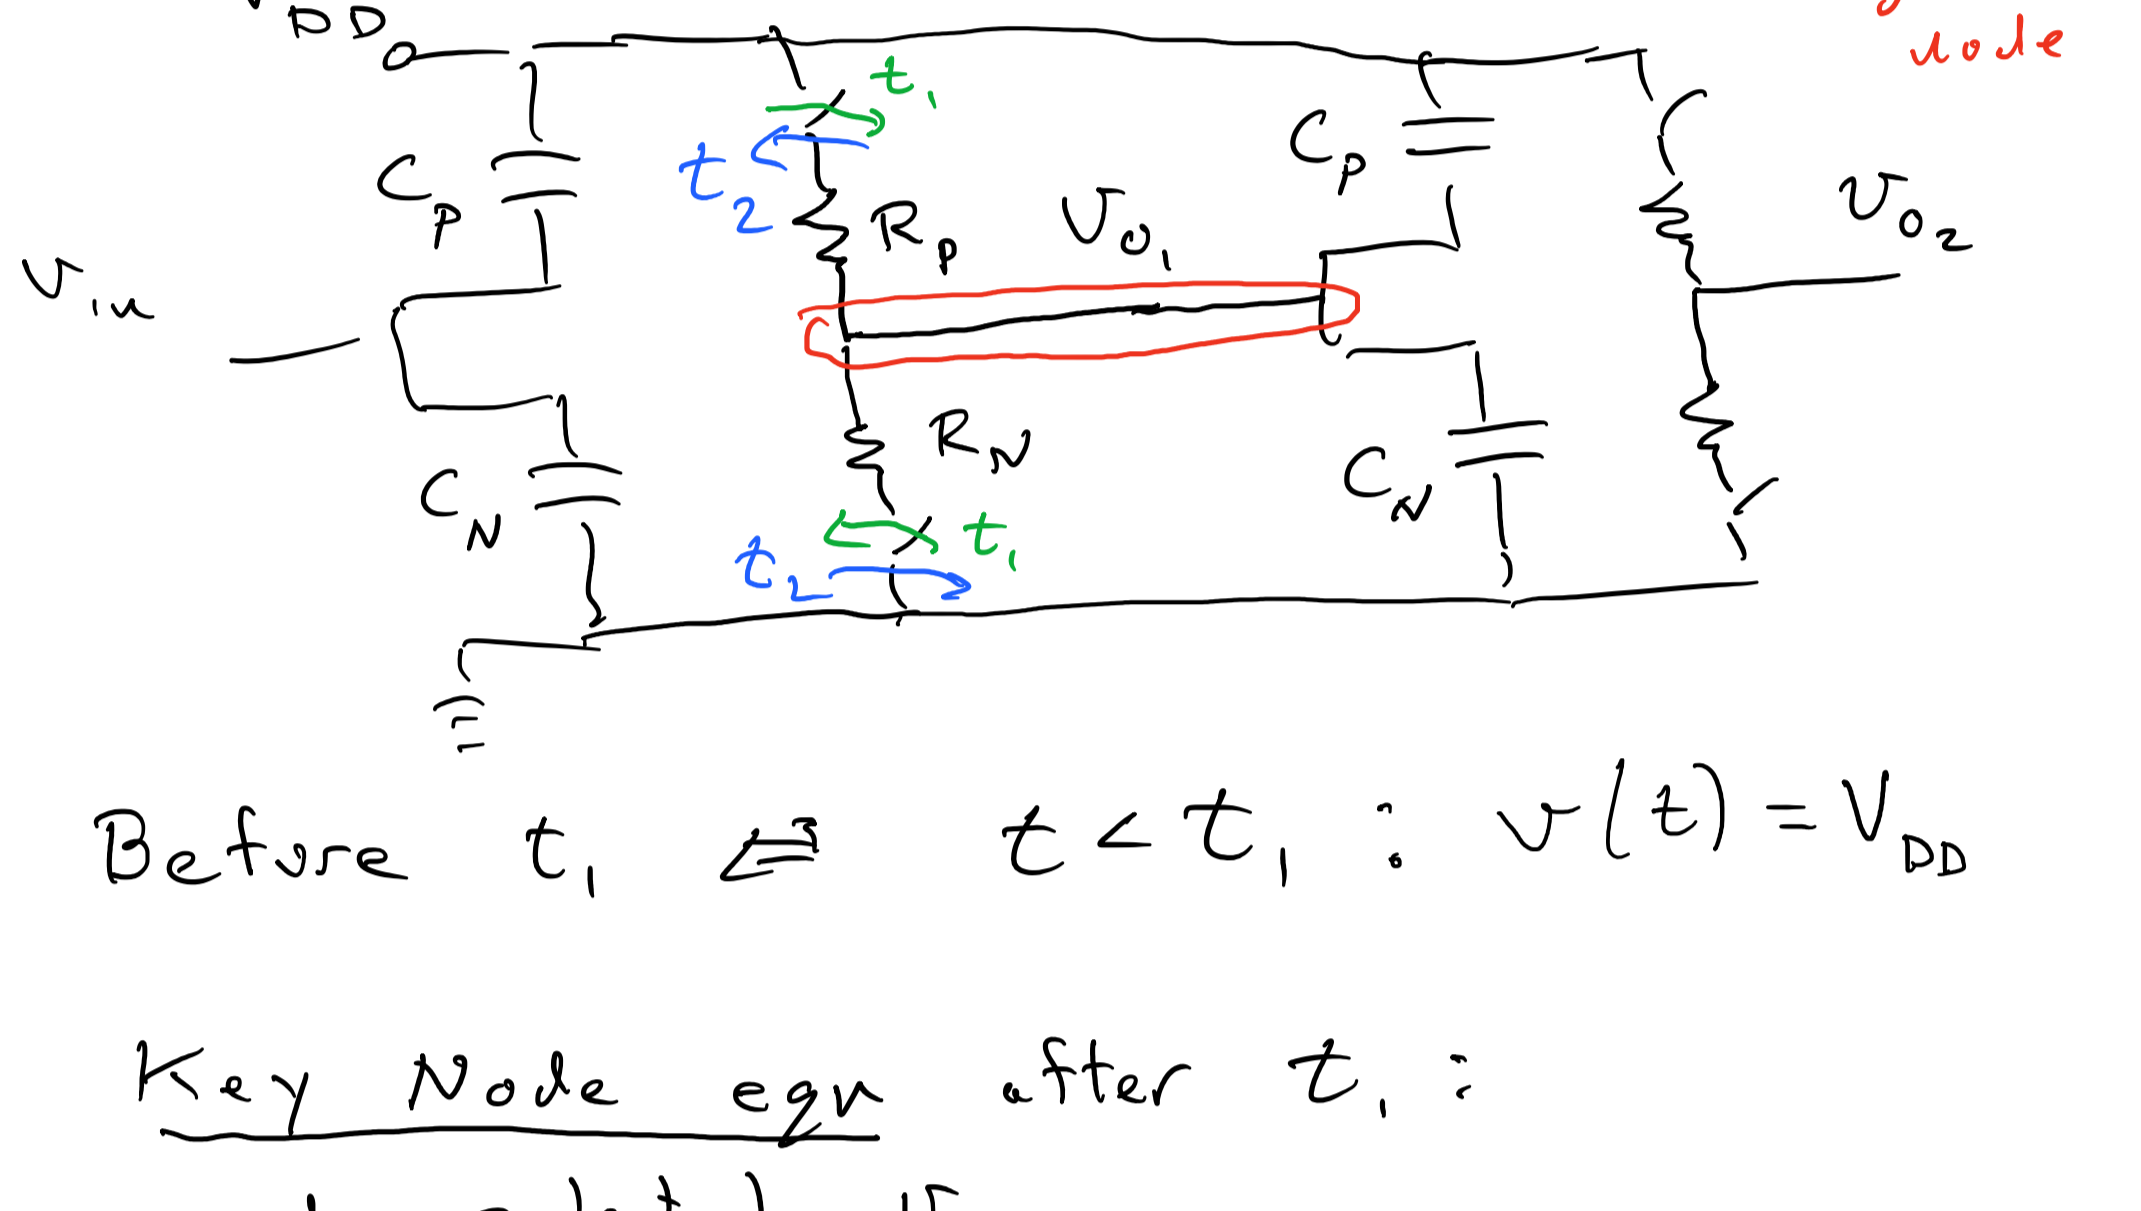 DD
node
t₁
C_P
t₂
C_P
R_P
V_O₁
V_O₂
V_in
R_N
C_N
C_N
t₁
t₂
Before t₁ ⇔ t < t₁ : v(t) = V_DD
Key Node eqn after t₁ :